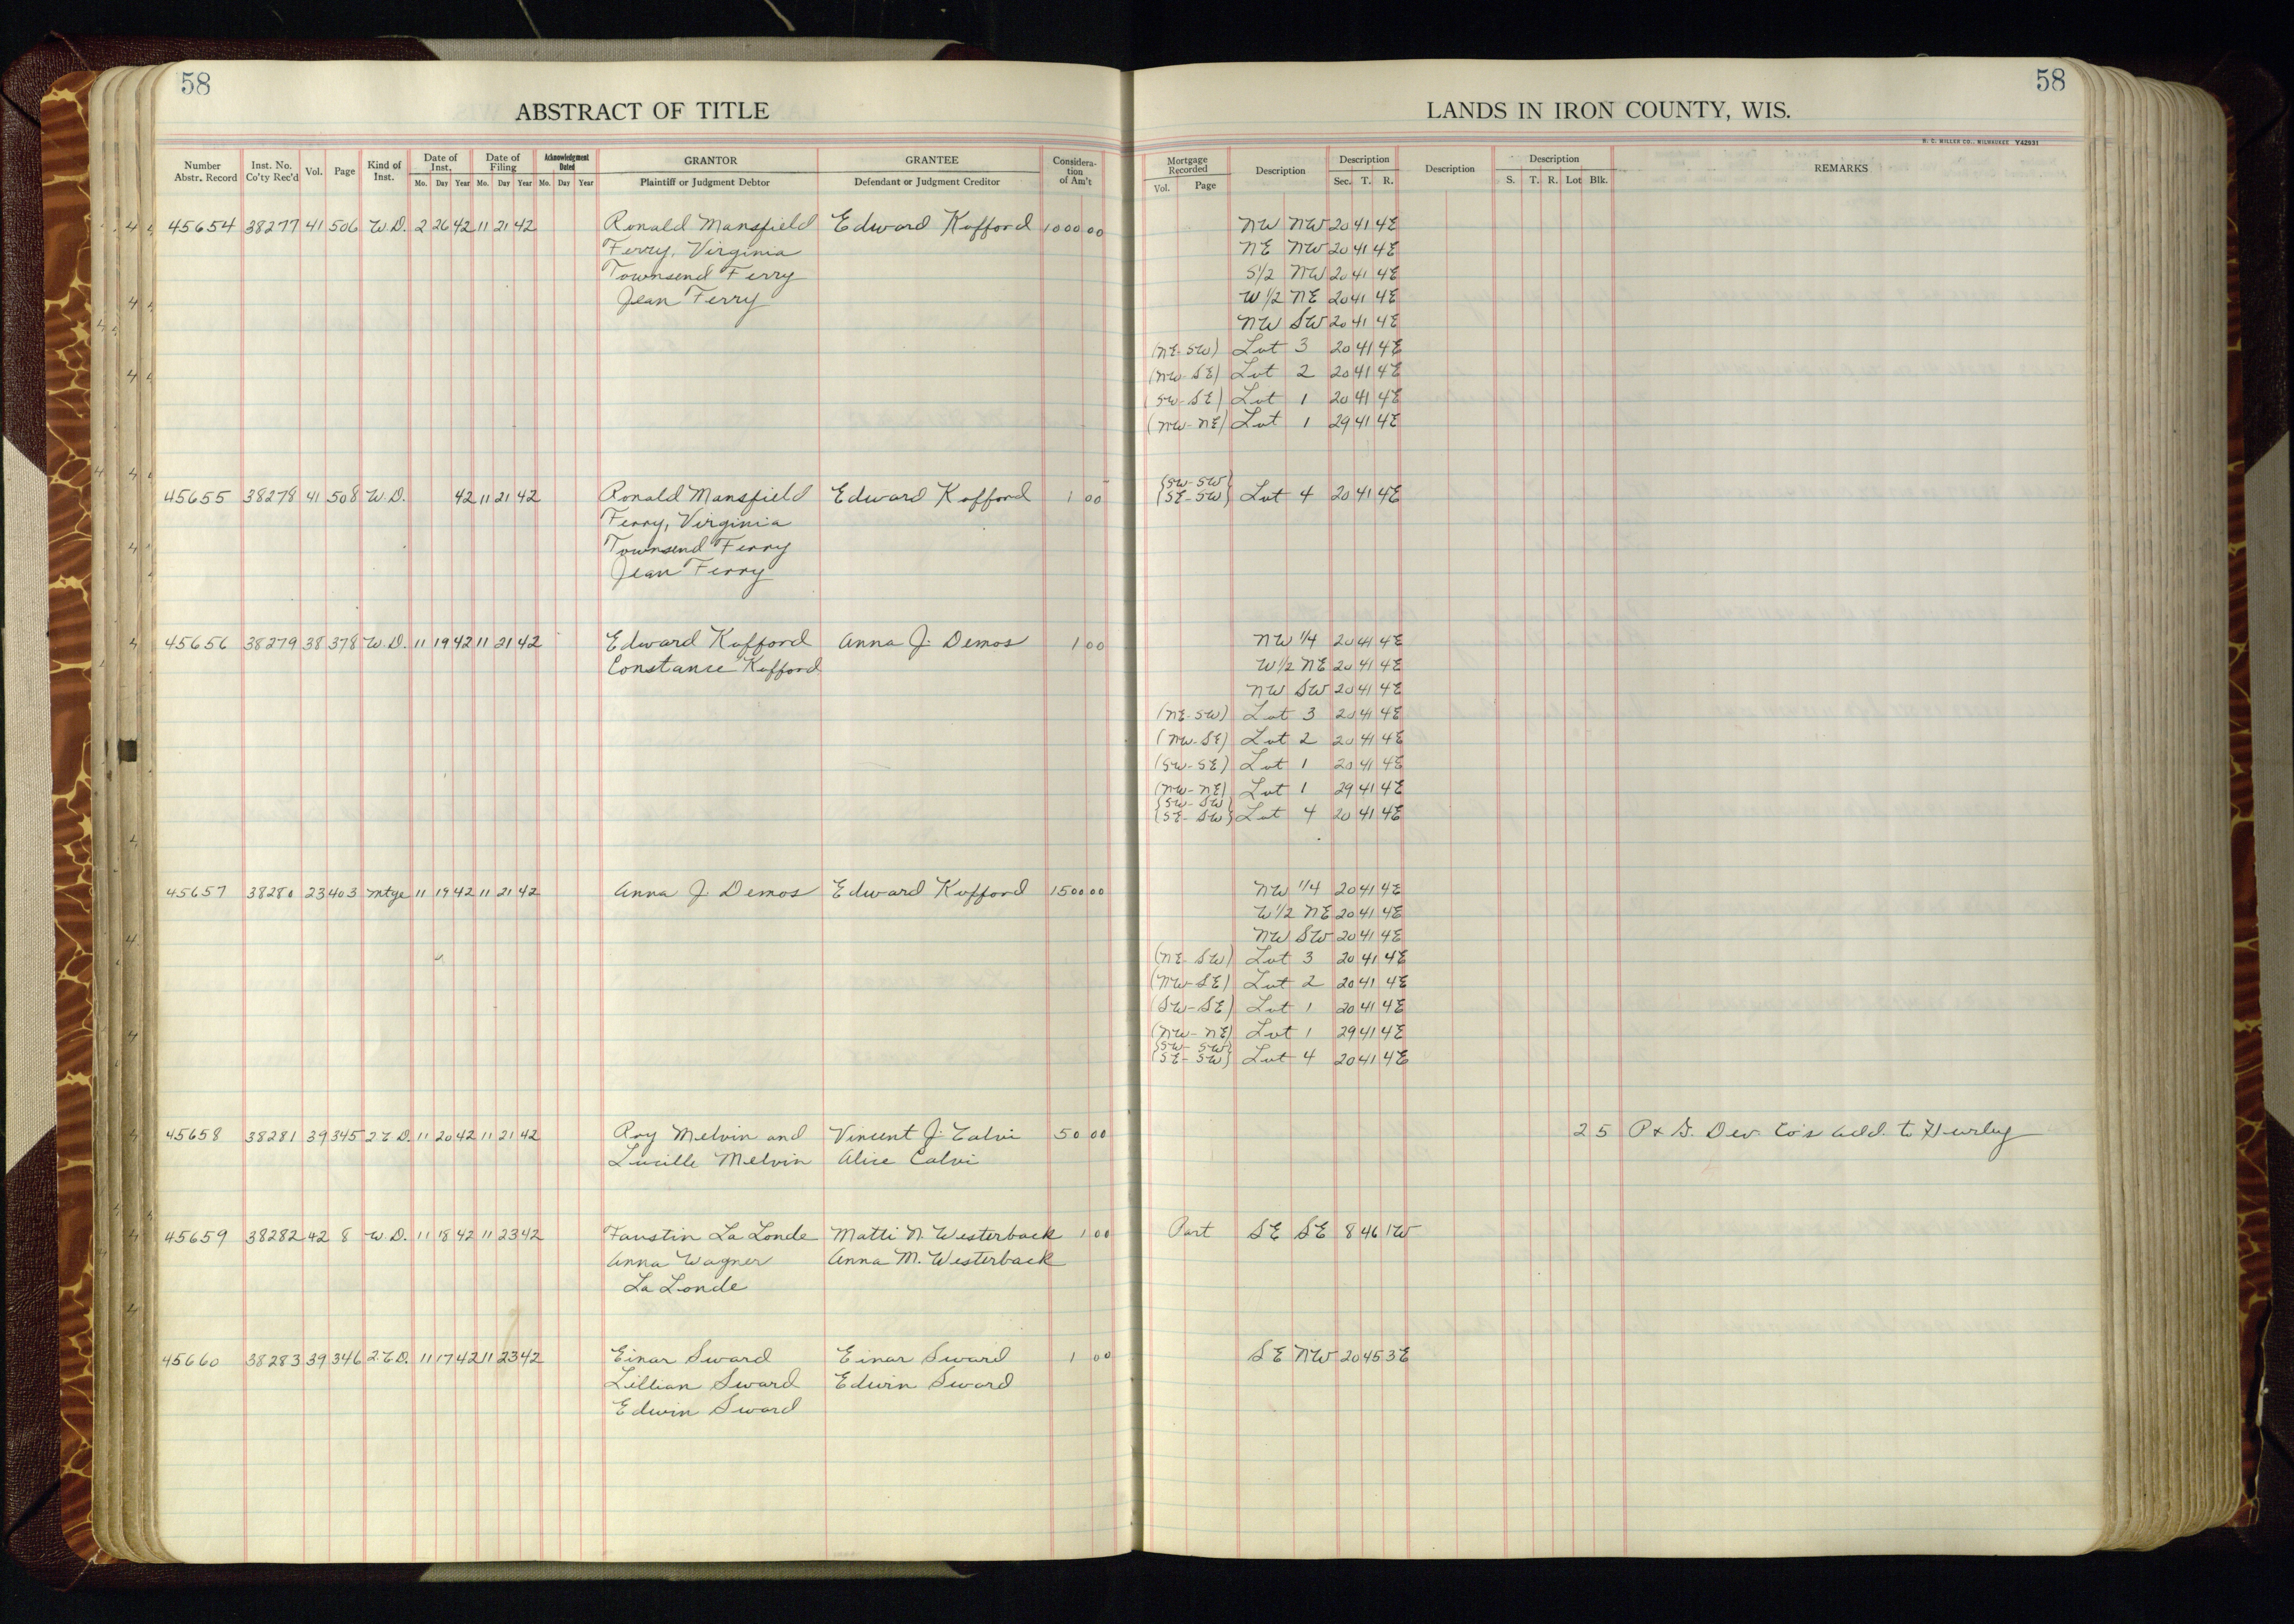 58
58
ABSTRACT OF TITLE
LANDS IN IRON COUNTY, WIS.
H. C. MILLER CO., MILWAUKEE Y42931
Number Abstr. Record Inst. No. Co'ty Rec'd Vol. Page Kind of Inst. Date of Inst. Mo. Day Year Date of Filing Mo. Day Year Acknowledgment Dated Mo. Day Year GRANTOR Plaintiff or Judgment Debtor GRANTEE Defendant or Judgment Creditor Consideration of Am't Mortgage Recorded Vol. Page Description Description Sec. T. R. Description Description S. T. R. Lot Blk. REMARKS
45654 38277 41 506 W.D. 2 26 42 11 21 42 Ronald Mansfield Edward Kofford 1000 00 NW NW 20 41 4E
Ferry, Virginia NE NW 20 41 4E
Townsend Ferry S1/2 NW 20 41 4E
Jean Ferry W1/2 NE 20 41 4E
NW SW 20 41 4E
(NE-SW) Lot 3 20 41 4E
(NW-SE) Lot 2 20 41 4E
(SW-SE) Lot 1 20 41 4E
(NW-NE) Lot 1 29 41 4E
{SW-SW}
45655 38278 41 508 W.D. 42 11 21 42 Ronald Mansfield Edward Kofford 1 00 {SE-SW} Lot 4 20 41 4E
Ferry, Virginia
Townsend Ferry
Jean Ferry
45656 38279 38 378 W.D. 11 19 42 11 21 42 Edward Kofford Anna J. Demos 1 00 NW 1/4 20 41 4E
Constance Kofford W1/2 NE 20 41 4E
NW SW 20 41 4E
(NE-SW) Lot 3 20 41 4E
(NW-SE) Lot 2 20 41 4E
(SW-SE) Lot 1 20 41 4E
(NW-NE) Lot 1 29 41 4E
{SW-SW}
{SE-SW} Lot 4 20 41 4E
45657 38280 23 403 Mtge 11 19 42 11 21 42 Anna J. Demos Edward Kofford 1500 00 NW 1/4 20 41 4E
W1/2 NE 20 41 4E
NW SW 20 41 4E
(NE-SW) Lot 3 20 41 4E
(NW-SE) Lot 2 20 41 4E
(SW-SE) Lot 1 20 41 4E
(NW-NE) Lot 1 29 41 4E
{SW-SW}
{SE-SW} Lot 4 20 41 4E
45658 38281 39 345 2.C.D. 11 20 42 11 21 42 Roy Melvin and Vincent J. Calvi 50 00 2 5 P & G. Dev. Co's add. to Hurley
Lucille Melvin Alice Calvi
45659 38282 42 8 W.D. 11 18 42 11 23 42 Faustin La Londe Matti N. Westerback 1 00 Part SE SE 8 46 1W
Anna Wagner Anna M. Westerback
La Londe
45660 38283 39 346 2.C.D. 11 17 42 11 23 42 Einar Sward Einar Sward 1 00 SE NW 20 45 3E
Lillian Sward Edwin Sward
Edwin Sward